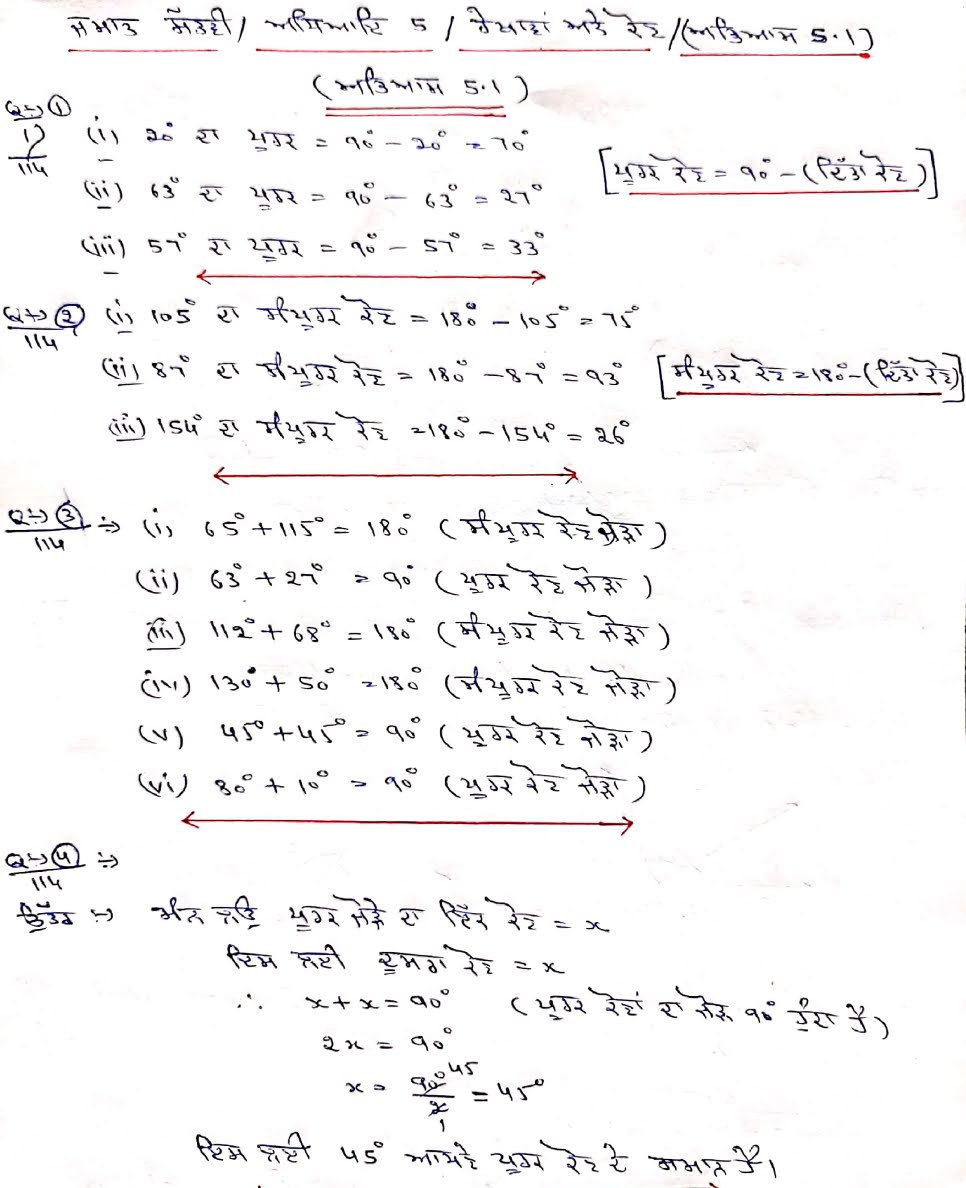 ਜਮਾਤ ਸੱਤਵੀਂ / ਅਧਿਆਇ 5 / ਰੇਖਾਵਾਂ ਅਤੇ ਕੋਣ / (ਅਭਿਆਸ 5.1)
(ਅਭਿਆਸ 5.1)
Q→ 1
114
(i) 20° ਦਾ ਪੂਰਕ = 90° - 20° = 70°
[ਪੂਰਕ ਕੋਣ = 90° - (ਦਿੱਤਾ ਕੋਣ)]
(ii) 63° ਦਾ ਪੂਰਕ = 90° - 63° = 27°
(iii) 57° ਦਾ ਪੂਰਕ = 90° - 57° = 33°
Q→ 2
114
(i) 105° ਦਾ ਸੰਪੂਰਕ ਕੋਣ = 180° - 105° = 75°
(ii) 87° ਦਾ ਸੰਪੂਰਕ ਕੋਣ = 180° - 87° = 93° [ਸੰਪੂਰਕ ਕੋਣ = 180° - (ਦਿੱਤਾ ਕੋਣ)]
(iii) 154° ਦਾ ਸੰਪੂਰਕ ਕੋਣ = 180° - 154° = 26°
Q→ 3
114
⇒ (i) 65° + 115° = 180° (ਸੰਪੂਰਕ ਕੋਣ ਜੋੜਾ)
(ii) 63° + 27° = 90° (ਪੂਰਕ ਕੋਣ ਜੋੜਾ)
(iii) 112° + 68° = 180° (ਸੰਪੂਰਕ ਕੋਣ ਜੋੜਾ)
(iv) 130° + 50° = 180° (ਸੰਪੂਰਕ ਕੋਣ ਜੋੜਾ)
(v) 45° + 45° = 90° (ਪੂਰਕ ਕੋਣ ਜੋੜਾ)
(vi) 80° + 10° = 90° (ਪੂਰਕ ਕੋਣ ਜੋੜਾ)
Q→ 4 ⇒
114
ਉੱਤਰ → ਮੰਨ ਲਉ ਪੂਰਕ ਜੋੜੇ ਦਾ ਇੱਕ ਕੋਣ = x
ਇਸ ਲਈ ਦੂਸਰਾ ਕੋਣ = x
∴ x + x = 90° (ਪੂਰਕ ਕੋਣਾਂ ਦਾ ਜੋੜ 90° ਹੁੰਦਾ ਹੈ)
2x = 90°
x = 90°/2 = 45°
45
1
ਇਸ ਲਈ 45° ਆਪਣੇ ਪੂਰਕ ਕੋਣ ਦੇ ਸਮਾਨ ਹੈ।